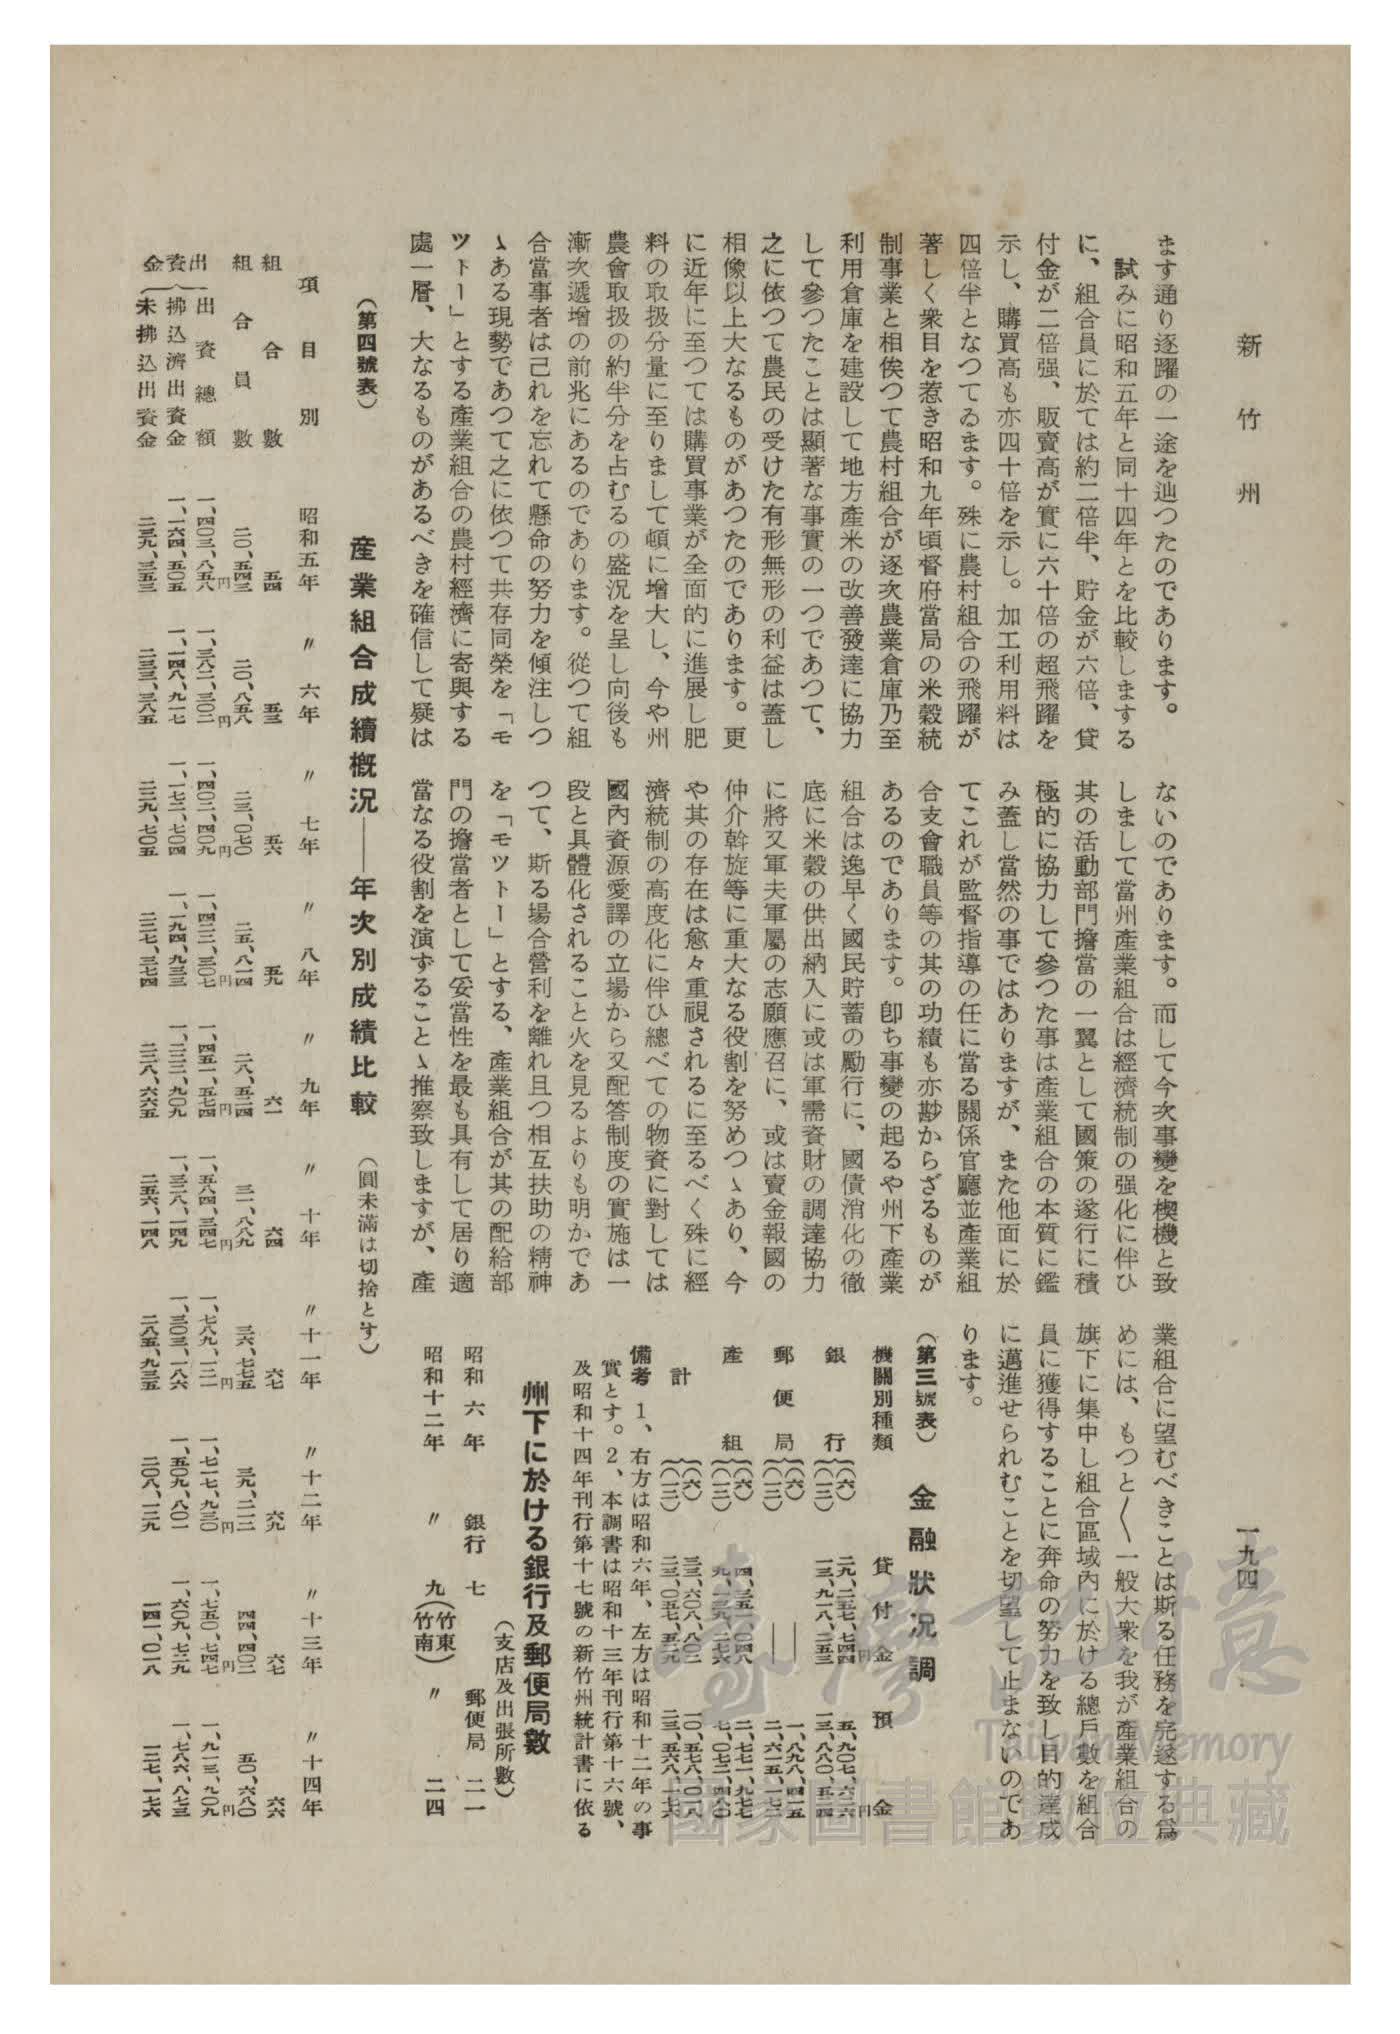 新竹州
一九四
ます通り逐躍の一途を辿つたのであります。
試みに昭和五年と同十四年とを比較しまする
に、組合員に於ては約二倍半、貯金が六倍、貸
付金が二倍强、販賣高が實に六十倍の超飛躍を
示し、購買高も亦四十倍を示し。加工利用料は
四倍半となつてゐます。殊に農村組合の飛躍が
著しく衆目を惹き昭和九年頃督府當局の米穀統
制事業と相俟つて農村組合が逐次農業倉庫乃至
利用倉庫を建設して地方產米の改善發達に協力
して參つたことは顯著な事實の一つであつて、
之に依つて農民の受けた有形無形の利益は蓋し
相像以上大なるものがあつたのであります。更
に近年に至つては購買事業が全面的に進展し肥
料の取扱分量に至りまして頓に增大し、今や州
農會取扱の約半分を占むるの盛況を呈し向後も
漸次遞增の前兆にあるのであります。從つて組
合當事者は己れを忘れて懸命の努力を傾注しつ
ゝある現勢であつて之に依つて共存同榮を「モ
ツトー」とする產業組合の農村經濟に寄與する
處一層、大なるものがあるべきを確信して疑は
ないのであります。而して今次事變を楔機と致
しまして當州產業組合は經濟統制の强化に伴ひ
其の活動部門擔當の一翼として國策の遂行に積
極的に協力して參つた事は產業組合の本質に鑑
み蓋し當然の事ではありますが、また他面に於
てこれが監督指導の任に當る關係官廳並產業組
合支會職員等の其の功績も亦尠からざるものが
あるのであります。卽ち事變の起るや州下產業
組合は逸早く國民貯蓄の勵行に、國債消化の徹
底に米穀の供出納入に或は軍需資財の調達協力
に將又軍夫軍屬の志願應召に、或は賣金報國の
仲介斡旋等に重大なる役割を努めつゝあり、今
や其の存在は愈々重視されるに至るべく殊に經
濟統制の高度化に伴ひ總べての物資に對しては
國內資源愛譯の立場から又配答制度の實施は一
段と具體化されること火を見るよりも明かであ
つて、斯る場合營利を離れ且つ相互扶助の精神
を「モツトー」とする、產業組合が其の配給部
門の擔當者として妥當性を最も具有して居り適
當なる役割を演ずることゝ推察致しますが、產
業組合に望むべきことは斯る任務を完遂する爲
めには、もつと〳〵一般大衆を我が產業組合の
旗下に集中し組合區域內に於ける總戶數を組合
員に獲得することに奔命の努力を致し目的達成
に邁進せられむことを切望して止まないのであ
ります。
（第三號表）　金融狀況調
機關別種類　貸付金　預金
銀行　（六）　二九、二五七、七四四円　五、九〇七、六二六円
（一二）　一三、九一八、二五三　一三、八八〇、五一四
郵便局　（六）　―　一、八九八、四一五
（一二）　―　二、六一五、一七二
產組　（六）　四、三五一、〇四八　二、七七一、九七七
（一二）　九、一三九、二七六　七、〇七二、四八〇
計　（六）　三三、六〇八、八〇三　一〇、五七八、〇一八
（一二）　二三、〇五七、五二九　二三、五六八、一七六
備考　1、右方は昭和六年、左方は昭和十二年の事
實とす。2、本調書は昭和十三年刊行第十六號、
及昭和十四年刊行第十七號の新竹州統計書に依る
州下に於ける銀行及郵便局數
（支店及出張所數）
昭和六年　銀行　七　郵便局　二一
昭和十二年　〃　九（竹東竹南）　〃　二四
（第四號表）　產業組合成績槪況――年次別成績比較　（圓未滿は切捨とす）
項目別　昭和五年　〃六年　〃七年　〃八年　〃九年　〃十年　〃十一年　〃十二年　〃十三年　〃十四年
組合數　五四　五三　五六　五九　六一　六四　六七　六九　六七　六六
組合員數　二〇、五四三　二〇、八五八　二三、〇七〇　二五、八一四　二八、五二四　三一、八八九　三六、七七五　三九、二一二　四四、四〇三　五〇、六八〇
出資金　出資總額　一、四〇三、八五八円　一、三八二、三〇二円　一、四〇二、四〇九円　一、四二二、三〇七円　一、四五一、五七四円　一、五八四、三四七円　一、七八九、一二一円　一、七一七、九三〇円　一、七五〇、七四七円　一、九一三、九〇九円
拂込濟出資金　一、一六四、五〇五　一、一四八、九一七　一、一七二、七〇四　一、一九四、九三三　一、二二二、九〇九　一、三二八、一四九　一、五〇三、一八六　一、五〇九、八〇一　一、六〇九、七二九　一、七八六、八七三
未拂込出資金　二三九、三五三　二三三、三八五　二二九、七〇五　二二七、三七四　二二八、六六五　二五六、一四八　二八五、九三五　二〇八、一二九　一四一、〇一八　一二七、一七六
臺灣記憶
Taiwan Memory
國家圖書館數位典藏